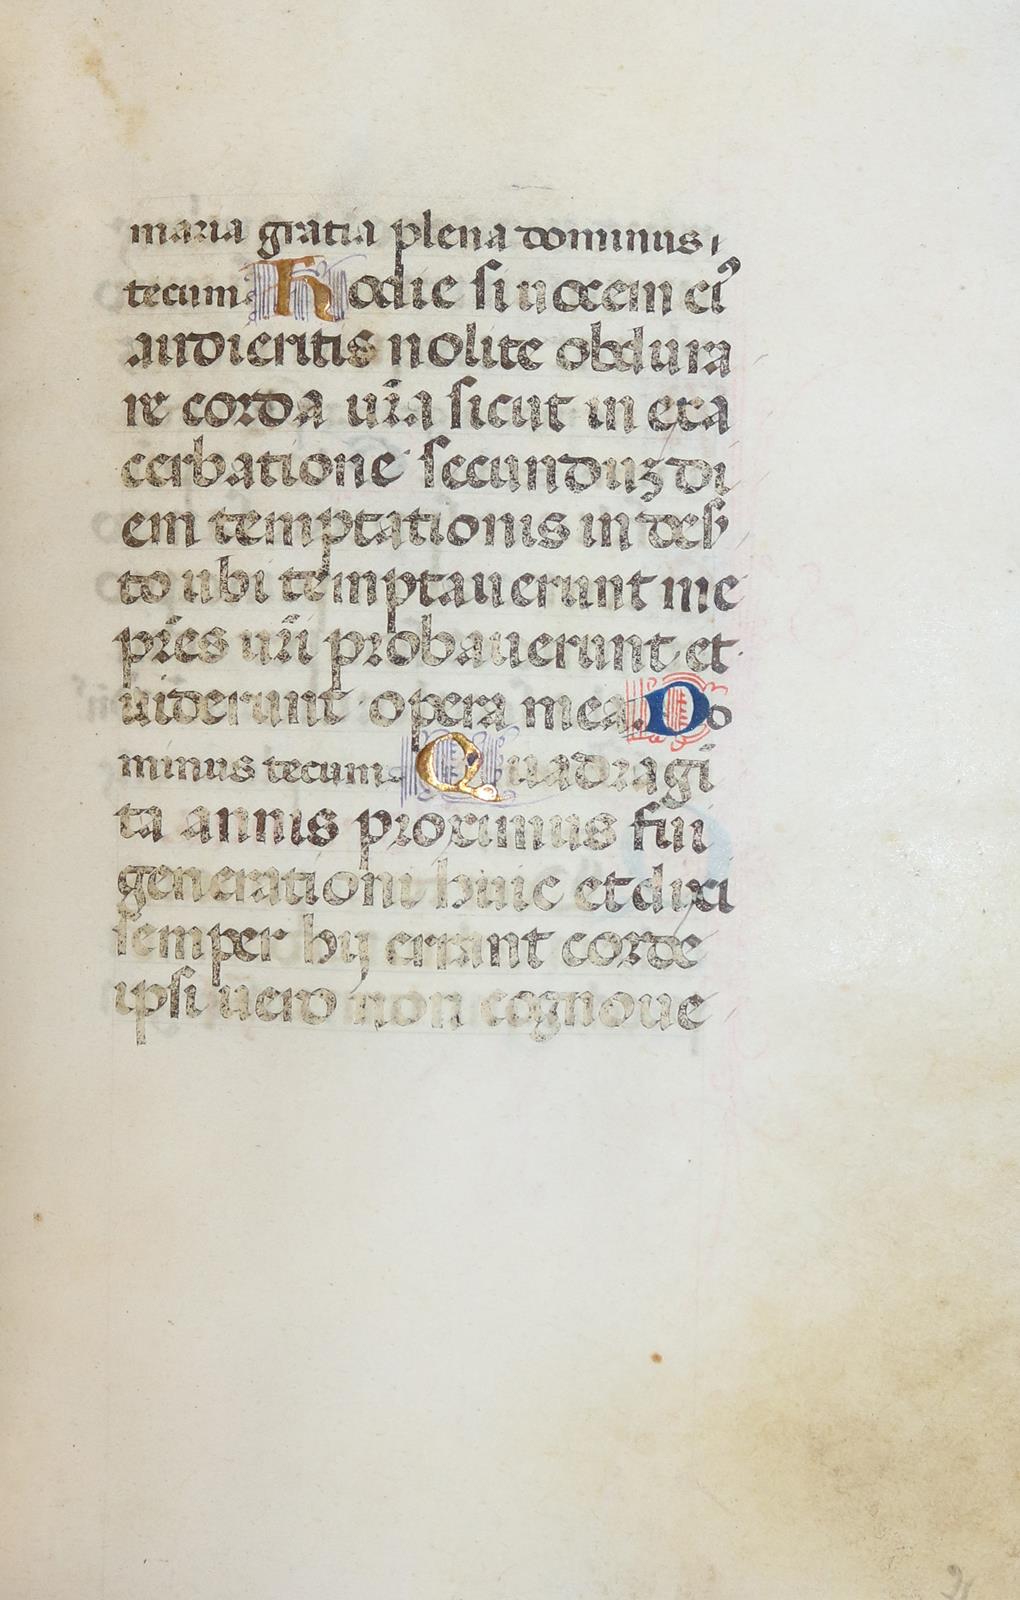 maria gratia plena dominus
tecum. Hodie si uocem ei⁹
audieritis nolite obdura
re corda ur̄a sicut in exa
cerbatione secunduꝫ di
em temptationis in des̾
to ubi temptauerunt me
pr̄es ur̄i probauerunt et
uiderunt opera mea. Do
minus tecum. Quadragī
ta annis proximus fui
generationi huic et dixi
semper hij errant corde
ipsi uero non cognoue